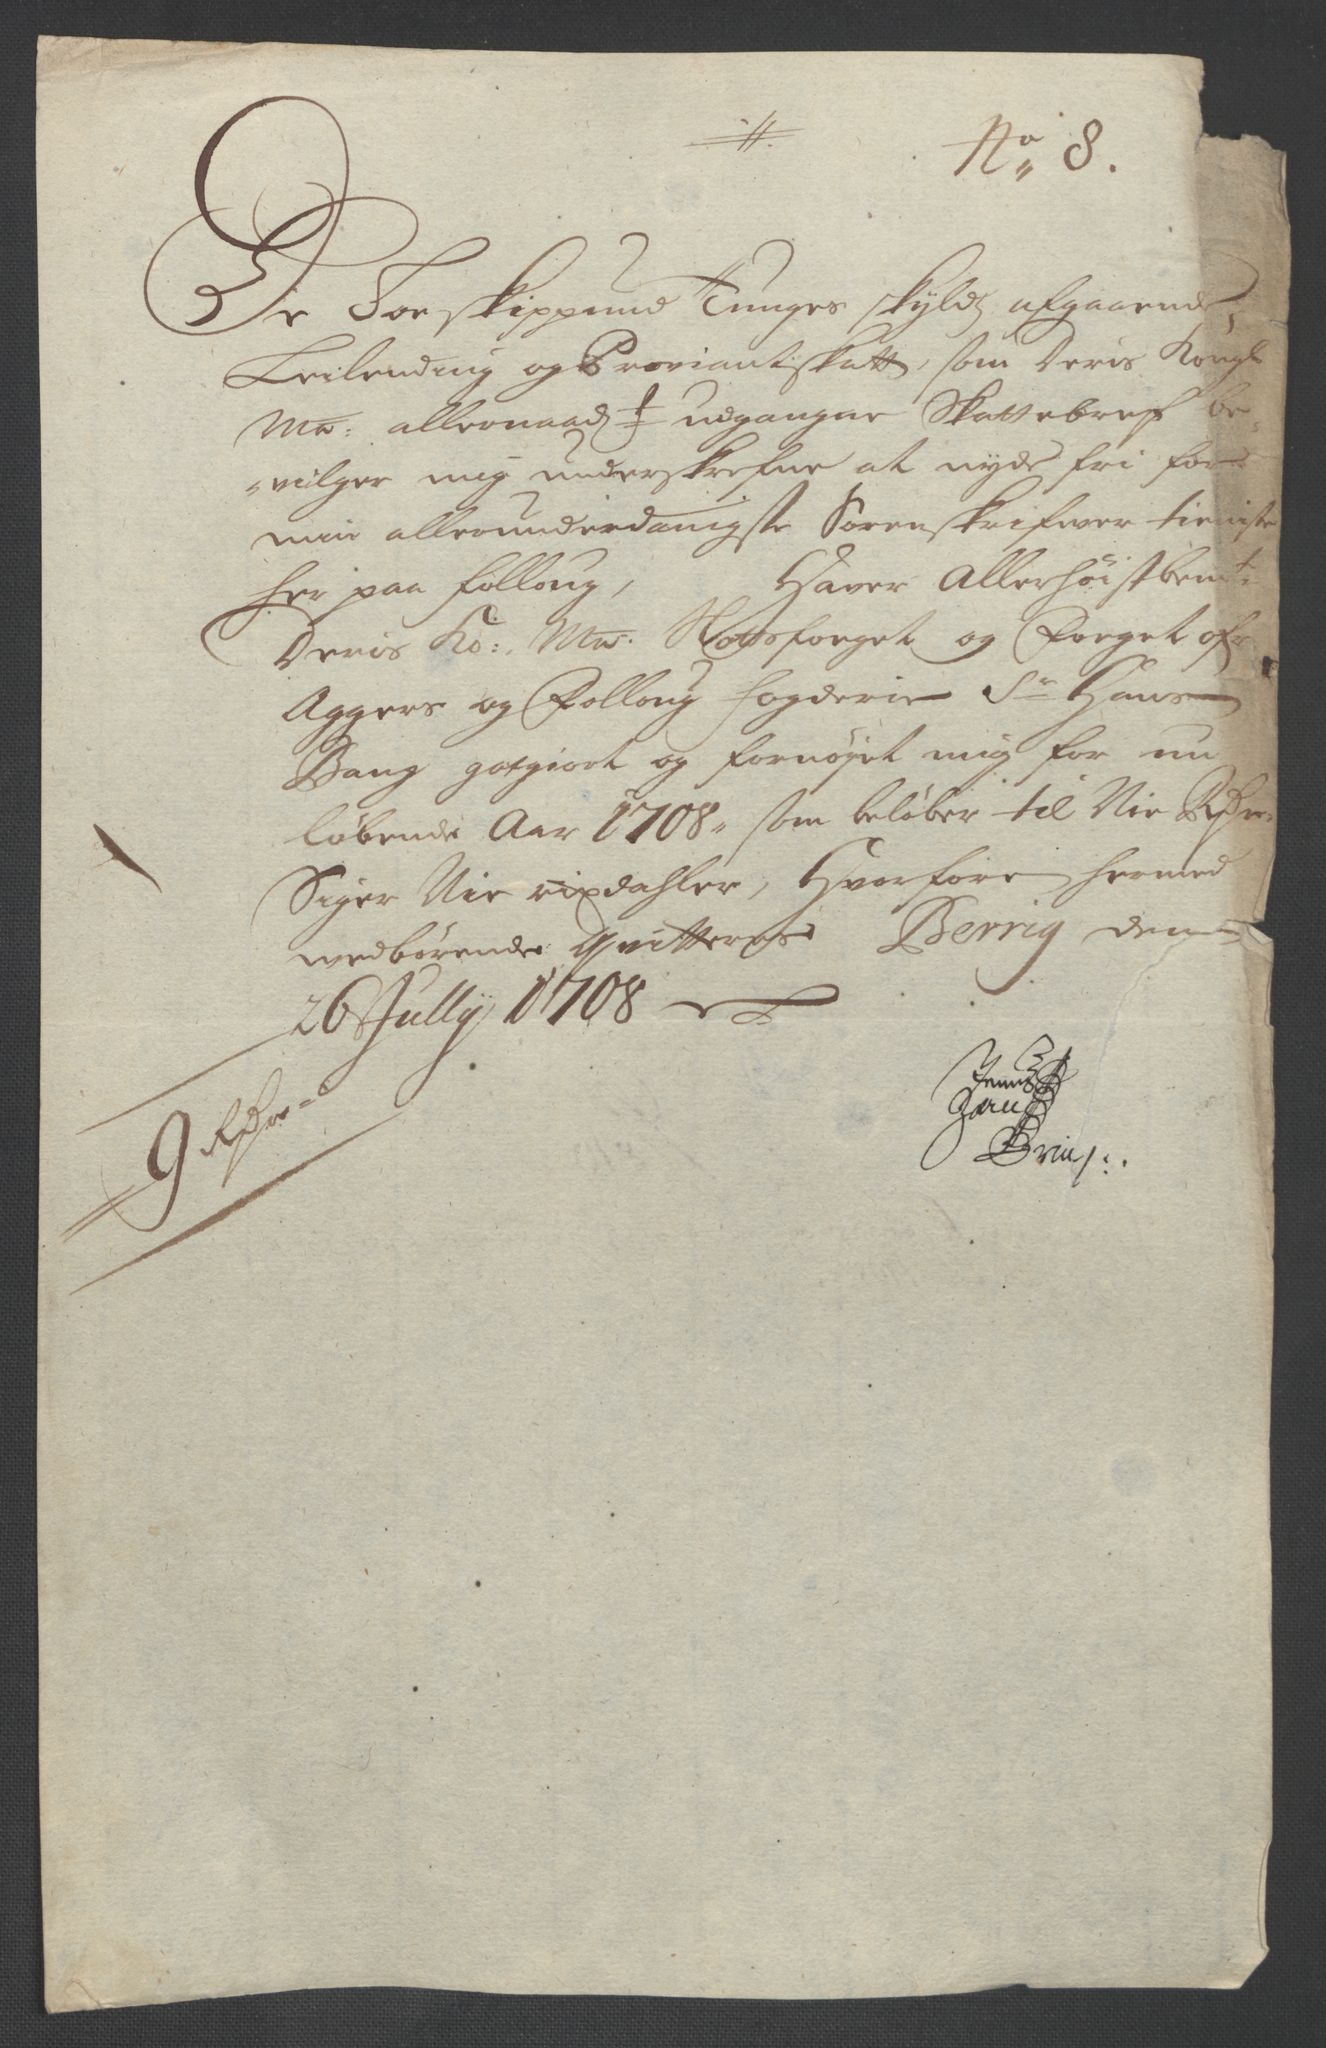 No 8.
De Toe skippund Tunges skyld afgaaende
Leilending og Proviantskatt, som Deris Kongl
Ma: allernaad: udgangne Skattebref be-
-vilger mig underskrefne at nyde fri for
min allerunderdanigste Sorenskrifwer tieniste
her paa Folloug, Hawer Allerhøistbemt:
Deris Ko: Ma: fogderie Sr Hans
Aggers og Folloug
Bang got giort og fornøyet mig for nu
løbende Aar 1708, som beløber til Nie Rdr
Siger Nie rixdahler, Hvorfore hermed
wedbørende qvitteres Berrig den
26 Jully 1708
9 Rdr